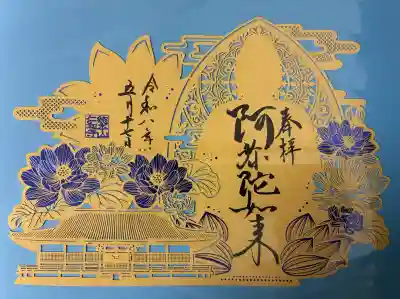 奉拝
阿弥陀如来
令和八年
五月十七日